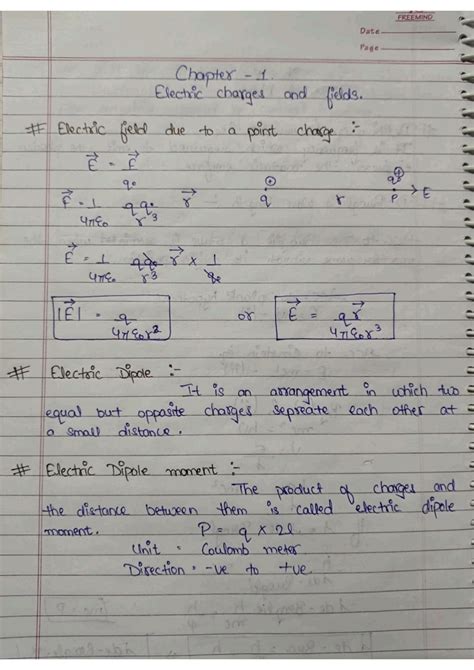 FREEMIND
Date
Page
Chapter - 1.
Electric charges and fields.
# Electric field due to a point charge :-
E⃗ = F⃗ / q₀
F⃗ = 1/4πε₀ qq₀/r³ r⃗ ⊕ q r ⊕ q₀ P → E
E⃗ = 1/4πε₀ qq₀/r³ r⃗ × 1/q₀
|E⃗| = q/4πε₀r² or E⃗ = qr⃗/4πε₀r³
# Electric Dipole :-
It is an arrangement in which two
equal but opposite charges sepreate each other at
a small distance.
# Electric Dipole moment :-
The product of charges and
the distance between them is called electric dipole
moment. P = q × 2l
Unit = Coulomb meter
Direction = -ve to +ve.